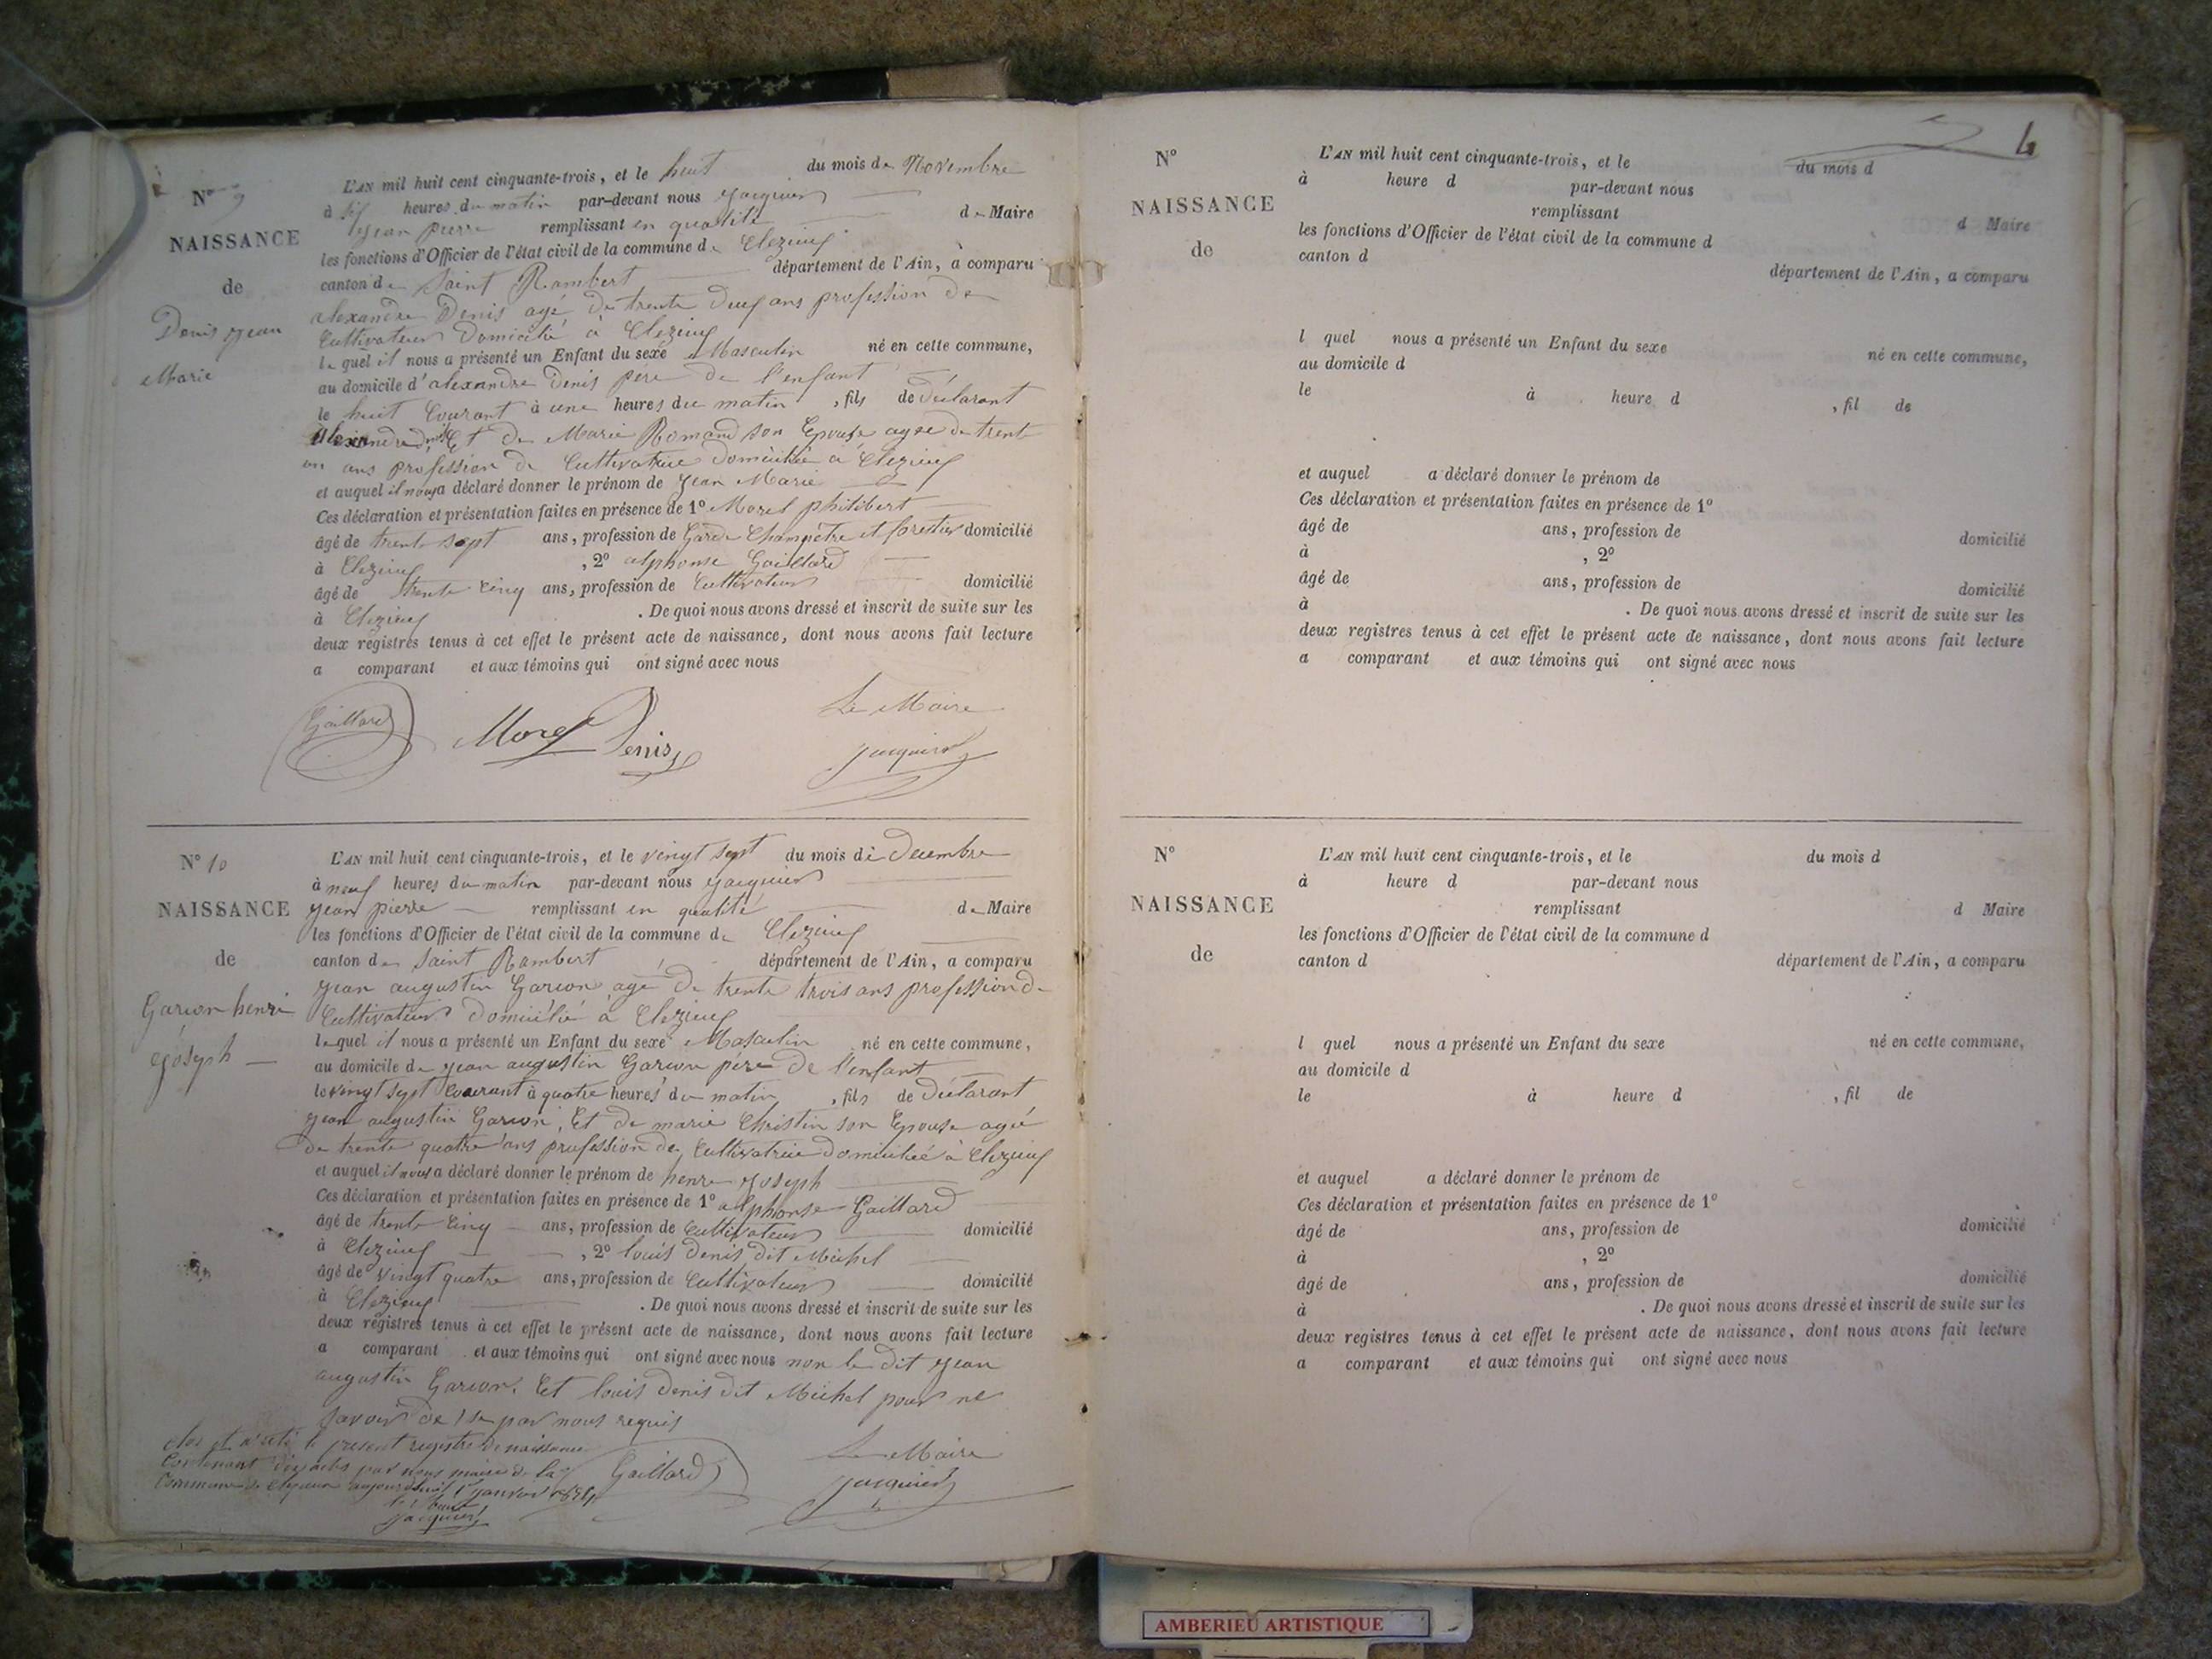 N° 9
NAISSANCE
de
Denis jean
Marie
L'AN mil huit cent cinquante-trois, et le huit du mois de Novembre
à six heures du matin par-devant nous jacquier
jean pierre remplissant en qualité de Maire
les fonctions d'Officier de l'état civil de la commune de Clezieux
canton de Saint Rambert département de l'Ain, a comparu
alexandre Denis agé de trente deux ans profession de
Cultivateur domicilié à Clezieux
lequel il nous a présenté un Enfant du sexe Masculin né en cette commune,
au domicile d'alexandre Denis père de l'enfant
le huit Courant à une heures du matin , fils de déclarant
alexandre Et de Marie Romand son Epouse agée de trente
un ans profession de Cultivatrice domiciliée à Clezieux
et auquel il nous a déclaré donner le prénom de jean Marie
Ces déclaration et présentation faites en présence de 1° Morel philibert
âgé de trente sept ans, profession de Garde Champêtre et forestier domicilié
à Clezieux , 2° alphonse Gaillard
âgé de trente cinq ans, profession de Cultivateur domicilié
à Clezieux . De quoi nous avons dressé et inscrit de suite sur les
deux registres tenus à cet effet le présent acte de naissance, dont nous avons fait lecture
a comparant et aux témoins qui ont signé avec nous
Gaillard Morel Denis Le Maire
jacquier
N° 10
NAISSANCE
de
Garion henri
joseph
L'AN mil huit cent cinquante-trois, et le vingt sept du mois de Decembre
à neuf heures du matin par-devant nous jacquier
jean pierre remplissant en qualité de Maire
les fonctions d'Officier de l'état civil de la commune de Clezieux
canton de Saint Rambert département de l'Ain, a comparu
jean augustin Garion agé de trente trois ans profession de
Cultivateur domicilié à Clezieux
lequel il nous a présenté un Enfant du sexe Masculin né en cette commune,
au domicile de jean augustin Garion père de l'enfant
le vingt sept Courant à quatre heures du matin , fils de déclarant
jean augustin Garion, Et de marie Christin son Epouse agée
de trente quatre ans profession de Cultivatrice domiciliée à Clezieux
et auquel il nous a déclaré donner le prénom de henri joseph
Ces déclaration et présentation faites en présence de 1° alphonse Gaillard
âgé de trente cinq ans, profession de Cultivateur domicilié
à Clezieux , 2° louis Denis dit Michel
âgé de vingt quatre ans, profession de Cultivateur domicilié
à Clezieux . De quoi nous avons dressé et inscrit de suite sur les
deux registres tenus à cet effet le présent acte de naissance, dont nous avons fait lecture
a comparant et aux témoins qui ont signé avec nous non le dit jean
augustin Garion. Et louis Denis dit Michel pour ne
savoir de ce par nous requis
clos et arrêté le present registre de naissance
Contenant dix actes par nous maire de la
Commune de Clezieux aujourdhui 1 janvier 1854
le maire
jacquier
Gaillard Le Maire
jacquier
4
N°
NAISSANCE
de
L'AN mil huit cent cinquante-trois, et le du mois d
à heure d par-devant nous
remplissant d Maire
les fonctions d'Officier de l'état civil de la commune d
canton d département de l'Ain, a comparu
l quel nous a présenté un Enfant du sexe né en cette commune,
au domicile d
le à heure d , fil de
et auquel a déclaré donner le prénom de
Ces déclaration et présentation faites en présence de 1°
âgé de ans, profession de domicilié
à , 2°
âgé de ans, profession de domicilié
à . De quoi nous avons dressé et inscrit de suite sur les
deux registres tenus à cet effet le présent acte de naissance, dont nous avons fait lecture
a comparant et aux témoins qui ont signé avec nous
N°
NAISSANCE
de
L'AN mil huit cent cinquante-trois, et le du mois d
à heure d par-devant nous
remplissant d Maire
les fonctions d'Officier de l'état civil de la commune d
canton d département de l'Ain, a comparu
l quel nous a présenté un Enfant du sexe né en cette commune,
au domicile d
le à heure d , fil de
et auquel a déclaré donner le prénom de
Ces déclaration et présentation faites en présence de 1°
âgé de ans, profession de domicilié
à , 2°
âgé de ans, profession de domicilié
à . De quoi nous avons dressé et inscrit de suite sur les
deux registres tenus à cet effet le présent acte de naissance, dont nous avons fait lecture
a comparant et aux témoins qui ont signé avec nous
AMBERIEU ARTISTIQUE